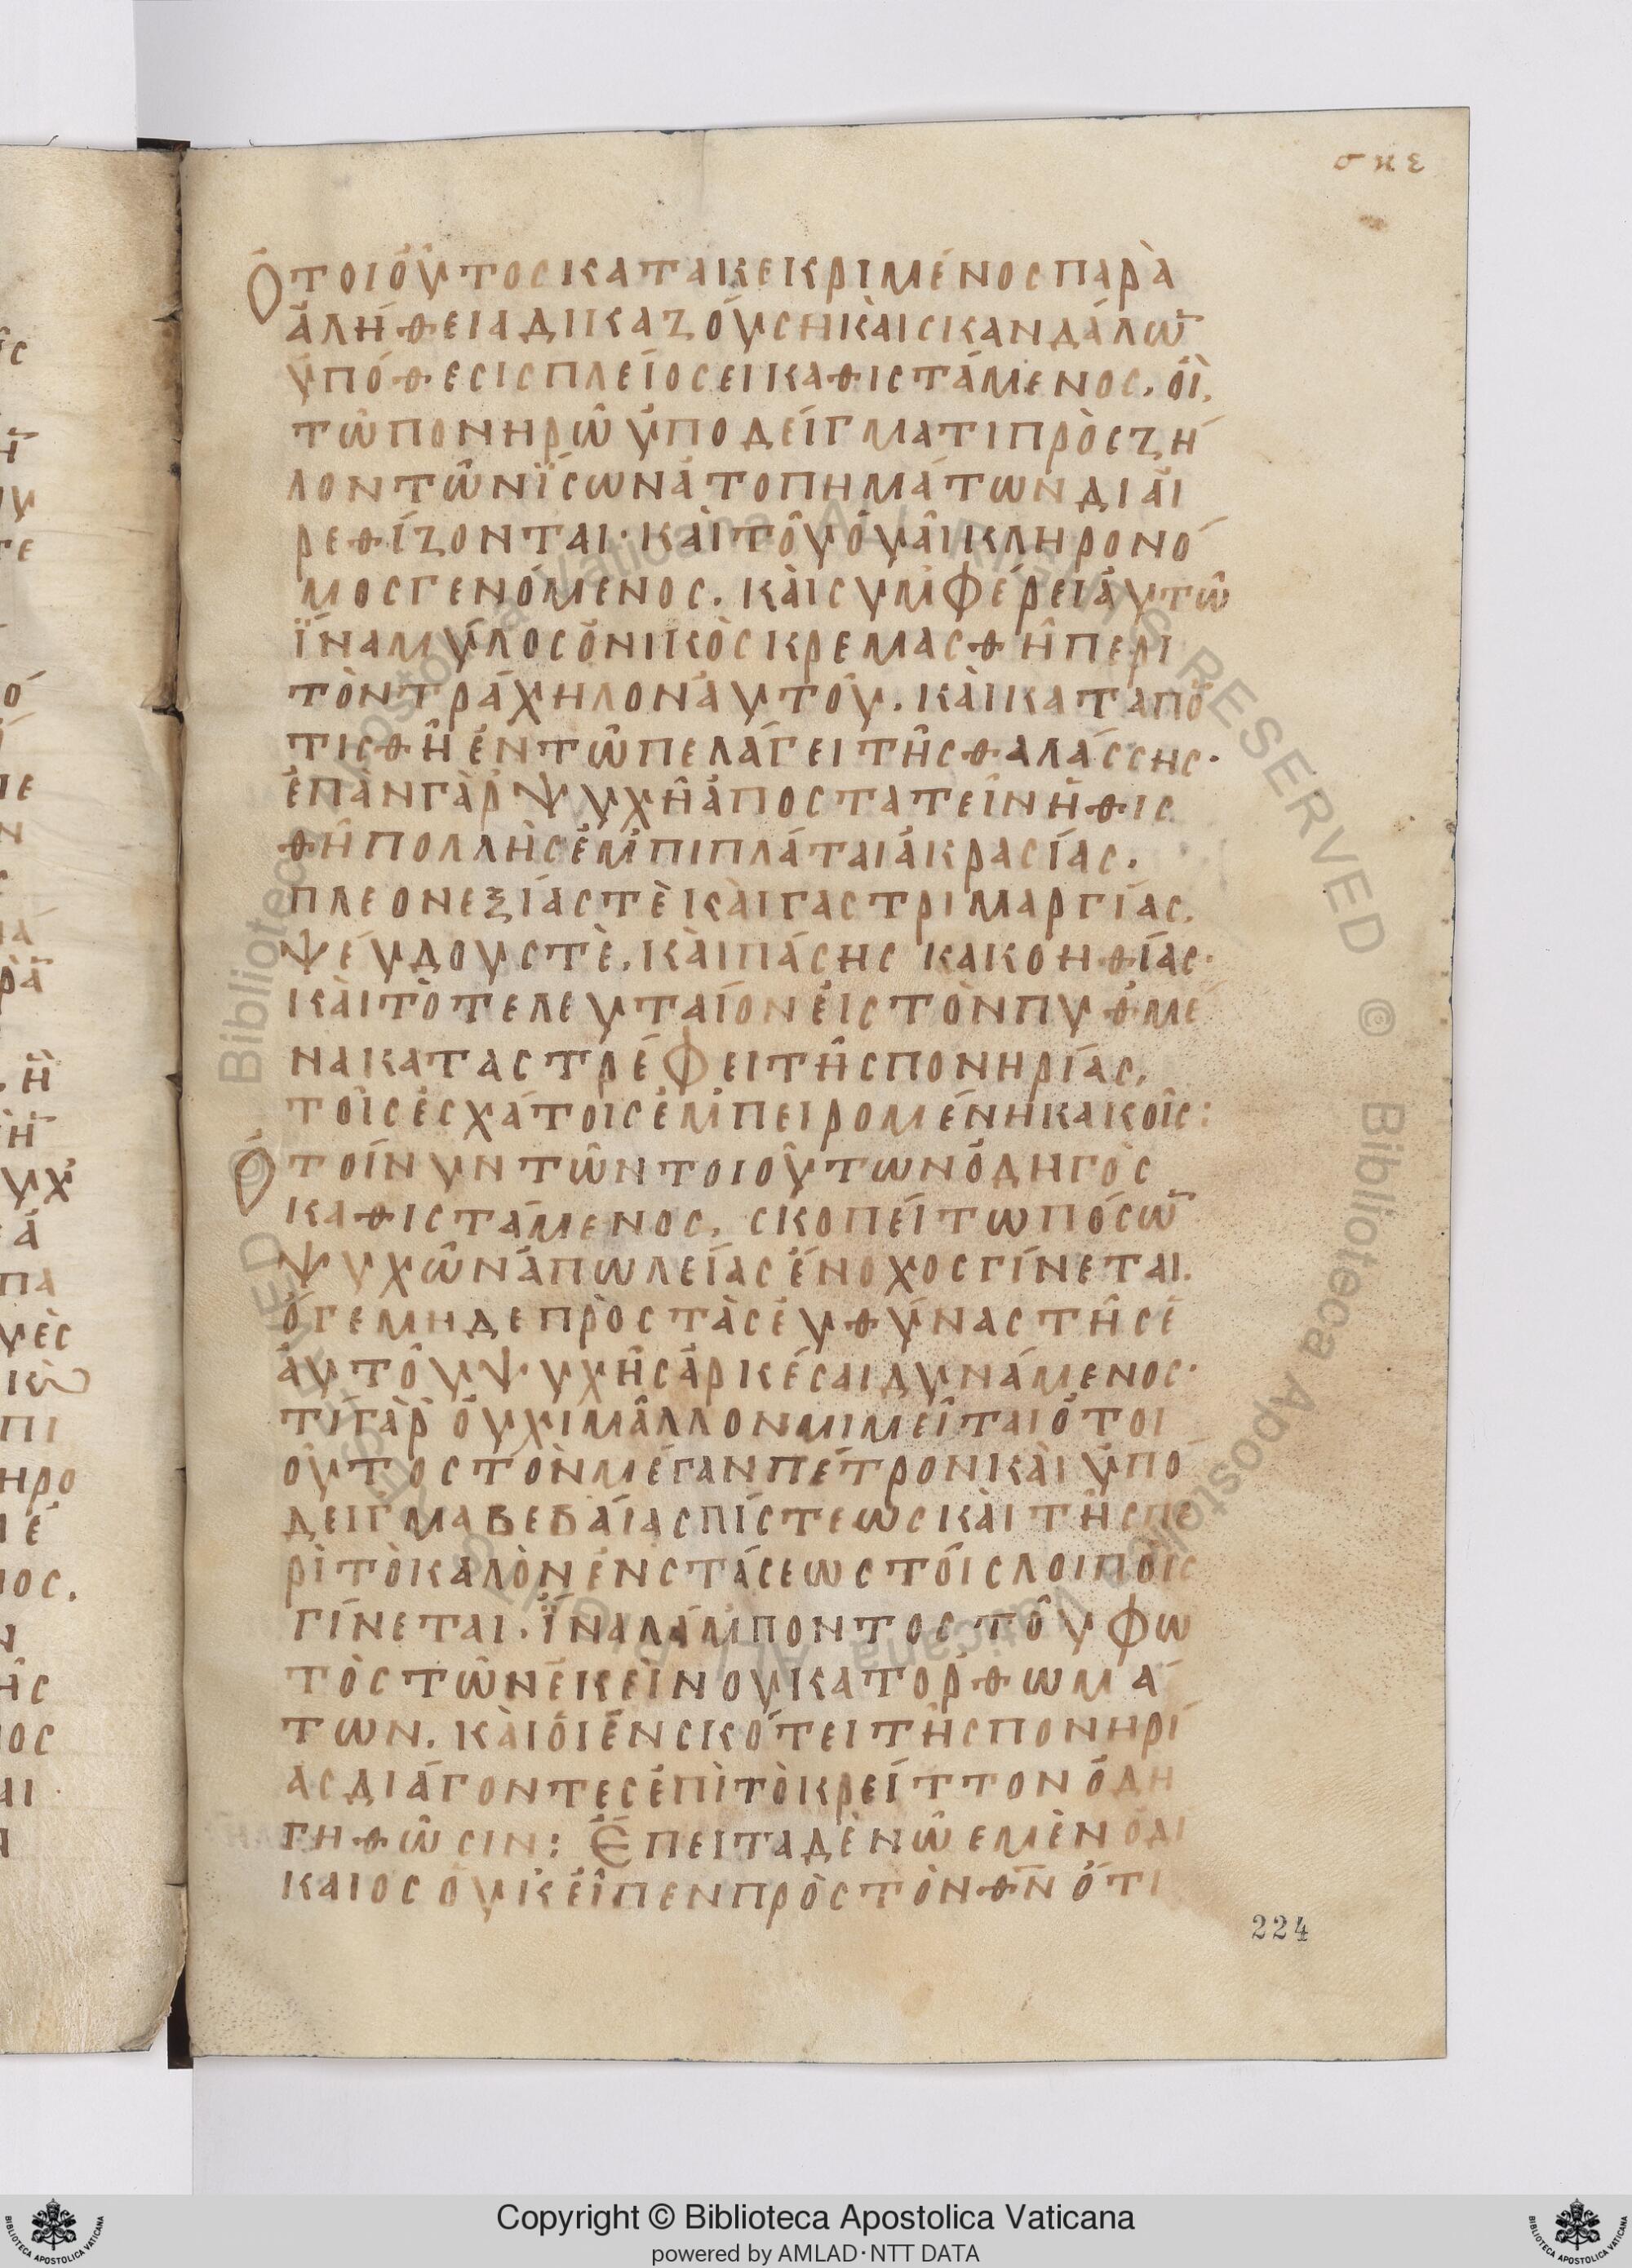 σκε
Ὁ τοιοῦτος κατακεκριμένος παρὰ
ἀληθεία δικαζούση καὶ σκανδάλω̅
ὑπόθεσις πλείοσει καθιστάμενος, οἳ,
τῶ πονηρῶ ὑποδείγματι πρὸς ζή
λον τῶν ἴσων ἀτοπημάτων διαι
ρεθίζονται· καὶ τοῦ οὐαὶ κληρονό
μος γενόμενος. καὶ συμφέρει αὐτῶ
ἵνα μύλος ὀνικὸς κρεμασθῆ περι
τὸν τράχηλον αὐτοῦ. καὶ καταπο
τισθῆ ἐν τῶ πελάγει τῆς θαλάσσης·
ἐπὰν γὰρ ψυχὴ ἀποστατεῖν ἠθισ
θῆ πολλῆς ἐμπιπλάται ἀκρασίας.
πλεονεξίας τὲ καὶ γαστριμαργίας.
ψεύδους τὲ. καὶ πάσης κακοηθίας·
καὶ τὸ τελευταῖον εἰς τὸν πυθμέ
να καταστρέφει τῆς πονηρίας,
τοῖς ἐσχάτοις ἐμπειρομένη κακοῖς:
Ὁ τοίνυν τῶν τοιούτων ὁδηγὸς
καθιστάμενος, σκοπείτω πόσω̅
ψυχῶν ἀπωλείας ἔνοχος γίνεται.
ὅ γε μηδε πρὸς τὰς εὐθύνας τῆς ἑ
αὐτοῦ ψυχῆς ἀρκέσαι δυνάμενος·
τί γὰρ οὐχι μᾶλλον μιμεῖται ὁ τοι
οῦτος τὸν μέγαν πέτρον καὶ ὑπό
δειγμα βεβαίας πίστεως καὶ τῆς πε
ρὶ τὸ καλὸν ἐνστάσεως τοῖς λοιποῖς
γίνεται. ἵνα λάμποντος τοῦ φω
τὸς τῶν ἐκείνου κατορθωμά
των. καὶ οἱ ἐν σκότει τῆς πονηρί
ας διάγοντες ἐπὶ τὸ κρείττον ὁδη
γηθῶσιν: Ἔπειτα δὲ νῶε μὲν ὁ δί
καιος οὐκ εἶπεν πρὸς τὸν θ̅ν̅ ὅτι
224
Copyright © Biblioteca Apostolica Vaticana
powered by AMLAD·NTT DATA